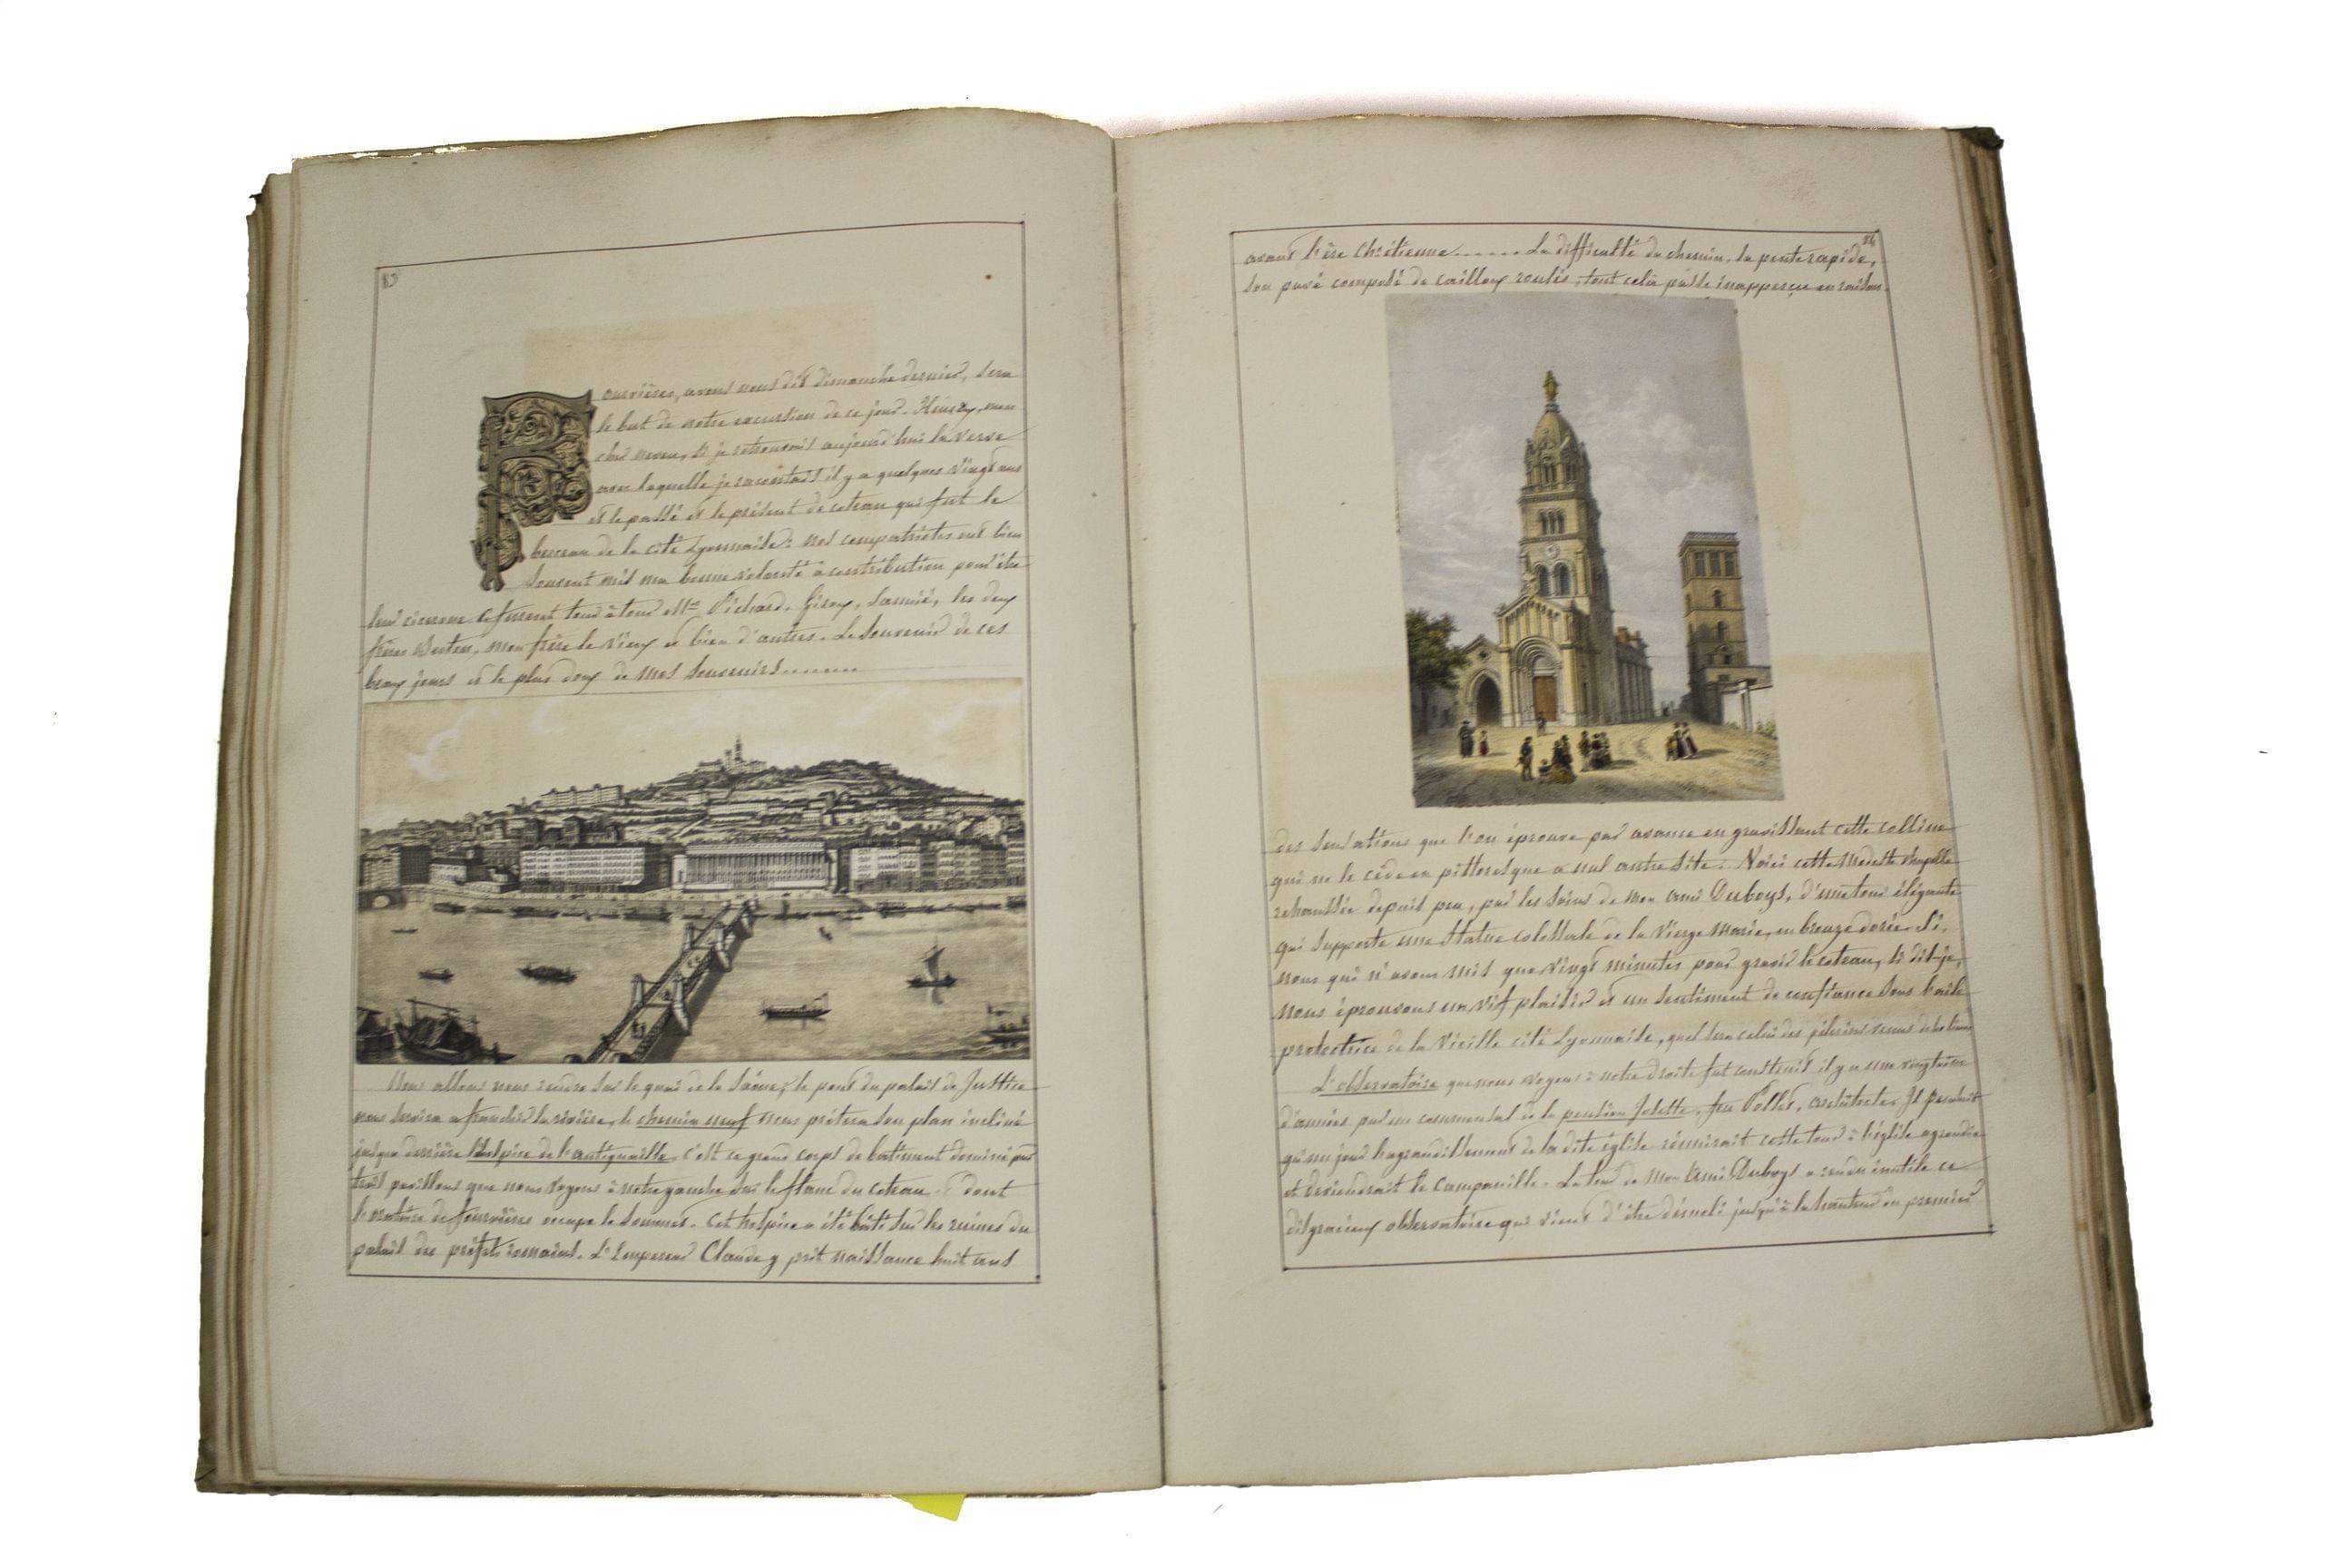 13
Fourvières, avons nous dit dimanche dernier, sera
le but de notre excursion de ce jour. Henry, mon
cher neveu, si je retrouvais aujourd'hui la verve
avec laquelle je racontais il y a quelques vingt ans
et le passé et le présent de coteau qui fut le
berceau de la cité Lyonnaise: nos compatriotes ont bien
souvent mis ma bonne volonté à contribution pour être
leur cicerone. Ce furent tour à tour Mrs Pichard, Giroy, les deux
frères Berten, mon frère le Vieux et bien d'autres. Le souvenir de ces
beaux jours est le plus doux de mes souvenirs........
Nous allons nous rendre sur le quai de la Saône, le pont du palais de Justice
nous servira a franchir la rivière, le chemin neuf nous prêtera son plan incliné
jusque derrière l'hospice de l'antiquaille, c'est ce grand corps de batiment dominé par
trois pavillons que nous voyons à notre gauche sur le flanc du coteau dont
l'oratoire de fourvières occupe le sommet. Cet hospice a été bâti sur les ruines du
palais des préfets romains. L'Empereur Claude y prit naissance huit ans
14
avant l'ère Chrétienne...... La difficulté du chemin, la pente rapide,
son pavé composé de cailloux roulés, tout cela passe inapperçu en raison
des sensations que l'on éprouve par avance en gravissant cette colline
qui ne le cède en pittoresque a nul autre site. Voici cette modeste chapelle
rehaussée depuis peu, par les soins de mon ami Duboys, d'une tour élégante
qui supporte une statue colossale de la Vierge Marie, en bronze dorée. Si,
nous qui n'avons mis que vingt minutes pour gravir le coteau, si dis-je,
nous éprouvons un vif plaisir et un sentiment de confiance sous l'aile
protectrice de la Vieille cité Lyonnaise, quel sera celui des pèlerins venus de
L'observatoire que nous voyons à notre droite fut construit il y a une vingtaine
d'années par un commensal de la pension Jolette, feu Pollet, architecte. Il pensait
qu'un jour l'agrandissement de la dite église réunirait cette tour à l'église agrandie
et deviendrait le Campanille. La tour de mon ami Duboys a rendu inutile ce
disgracieux observatoire qui vient d'être démoli jusqu'à la hauteur du premier